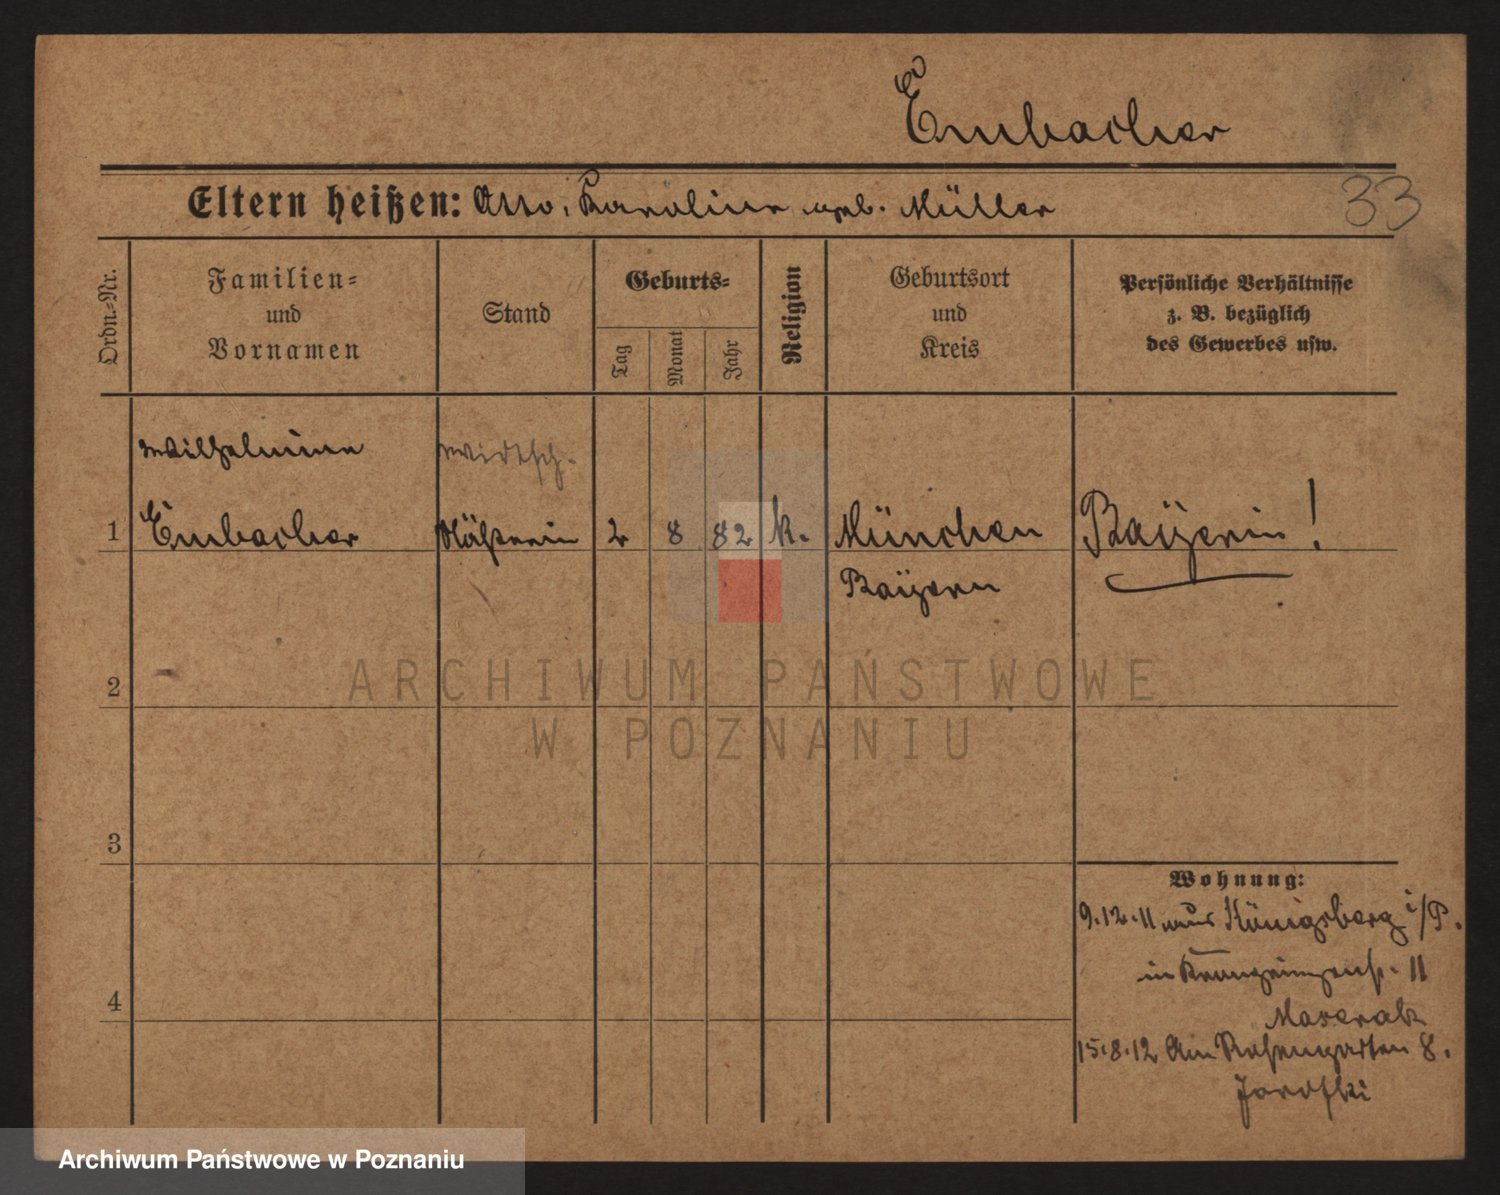 Embacher
Eltern heißen: Otto, Karoline geb. Müller
33
Ordn.-Nr.
Familien-
und
Vornamen
Stand
Geburts-
Tag
Monat
Jahr
Religion
Geburtsort
und
Kreis
Persönliche Verhältnisse
z. B. bezüglich
des Gewerbes usw.
Wilhelmine
Wirtsch.
1 Embacher 2 8 82 k. München Bayerin!
Bayern
2
3
4
Wohnung:
9.12.11 aus Königsberg i/P.
in 11
15.8.12 Am Rosengarten 8.
ARCHIWUM PAŃSTWOWE
W POZNANIU
Archiwum Państwowe w Poznaniu